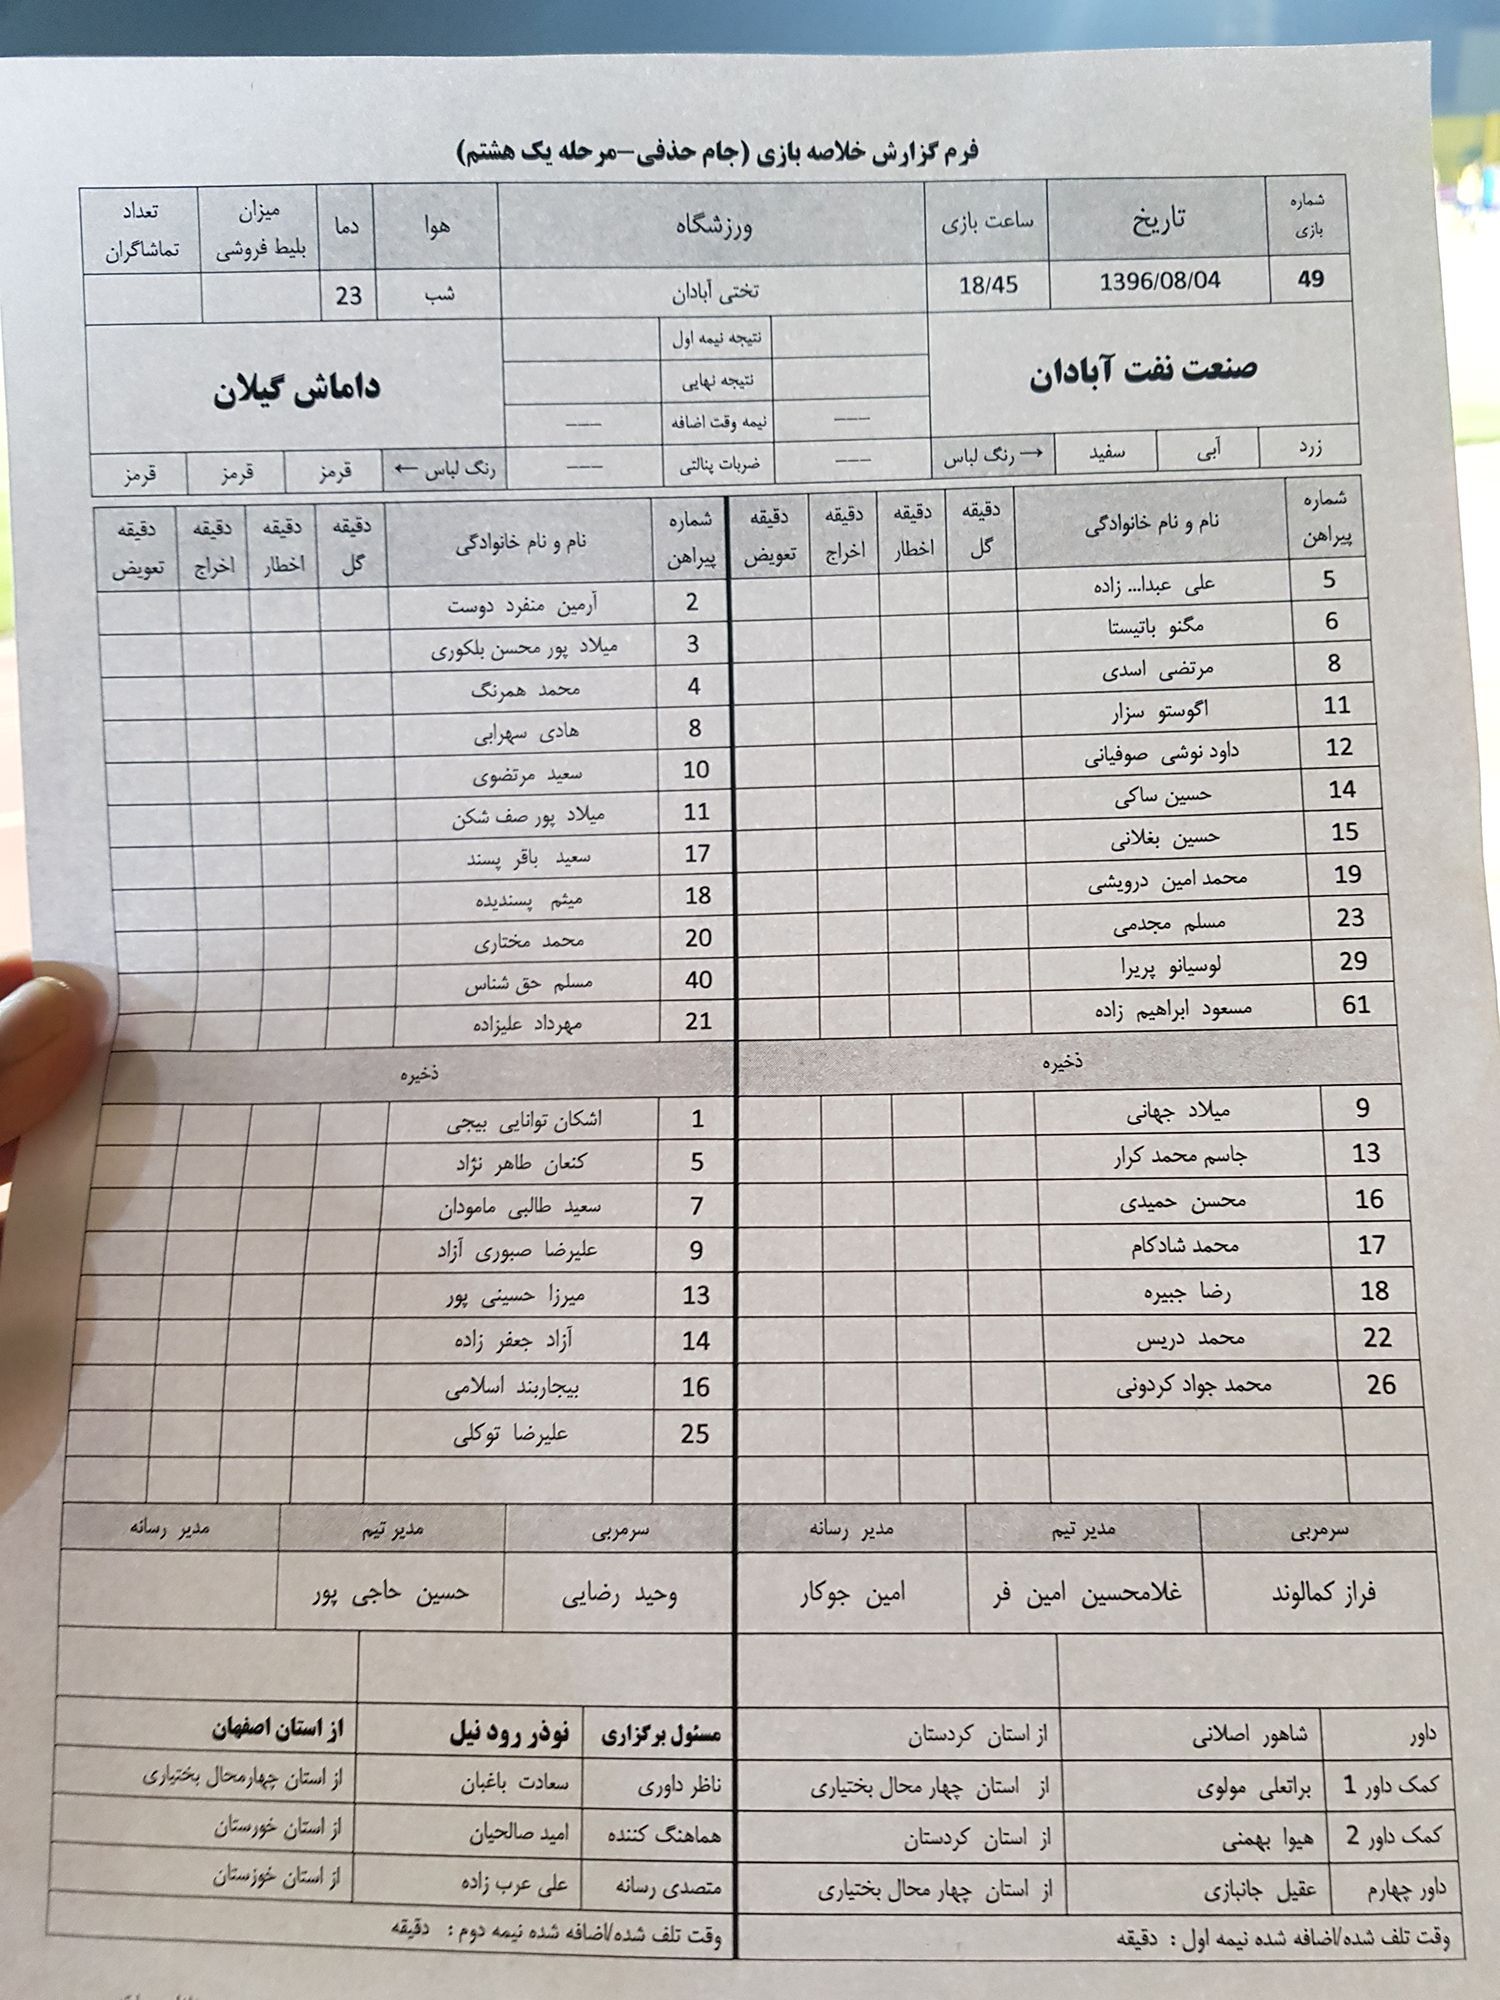 فرم گزارش خلاصه بازی (جام حذفی-مرحله یک هشتم)
شماره بازی تاریخ ساعت بازی ورزشگاه هوا دما میزان بلیط فروشی تعداد تماشاگران
49 1396/08/04 18/45 تختی آبادان شب 23
صنعت نفت آبادان نتیجه نیمه اول داماش گیلان
نتیجه نهایی
--- نیمه وقت اضافه ---
زرد آبی سفید → رنگ لباس --- ضربات پنالتی --- رنگ لباس ← قرمز قرمز قرمز
شماره پیراهن نام و نام خانوادگی دقیقه گل دقیقه اخطار دقیقه اخراج دقیقه تعویض شماره پیراهن نام و نام خانوادگی دقیقه گل دقیقه اخطار دقیقه اخراج دقیقه تعویض
5 علی عبدا... زاده 2 آرمین منفرد دوست
6 مگنو باتیستا 3 میلاد پور محسن بلکوری
8 مرتضی اسدی 4 محمد همرنگ
11 اگوستو سزار 8 هادی سهرابی
12 داود نوشی صوفیانی 10 سعید مرتضوی
14 حسین ساکی 11 میلاد پور صف شکن
15 حسین بغلانی 17 سعید باقر پسند
19 محمد امین درویشی 18 میثم پسندیده
23 مسلم مجدمی 20 محمد مختاری
29 لوسیانو پریرا 40 مسلم حق شناس
61 مسعود ابراهیم زاده 21 مهرداد علیزاده
ذخیره ذخیره
9 میلاد جهانی 1 اشکان توانایی بیجی
13 جاسم محمد کرار 5 کنعان طاهر نژاد
16 محسن حمیدی 7 سعید طالبی مامودان
17 محمد شادکام 9 علیرضا صبوری آزاد
18 رضا جبیره 13 میرزا حسینی پور
22 محمد دریس 14 آزاد جعفر زاده
26 محمد جواد کردونی 16 بیجاربند اسلامی
25 علیرضا توکلی
سرمربی مدیر تیم مدیر رسانه سرمربی مدیر تیم مدیر رسانه
فراز کمالوند غلامحسین امین فر امین جوکار وحید رضایی حسین حاجی پور
داور شاهور اصلانی از استان کردستان مسئول برگزاری نوذر رود نیل از استان اصفهان
کمک داور 1 براتعلی مولوی از استان چهار محال بختیاری ناظر داوری سعادت باغبان از استان چهارمحال بختیاری
کمک داور 2 هیوا بهمنی از استان کردستان هماهنگ کننده امید صالحیان از استان خورستان
داور چهارم عقیل جانبازی از استان چهار محال بختیاری متصدی رسانه علی عرب زاده از استان خوزستان
وقت تلف شده/اضافه شده نیمه اول : دقیقه وقت تلف شده/اضافه شده نیمه دوم : دقیقه